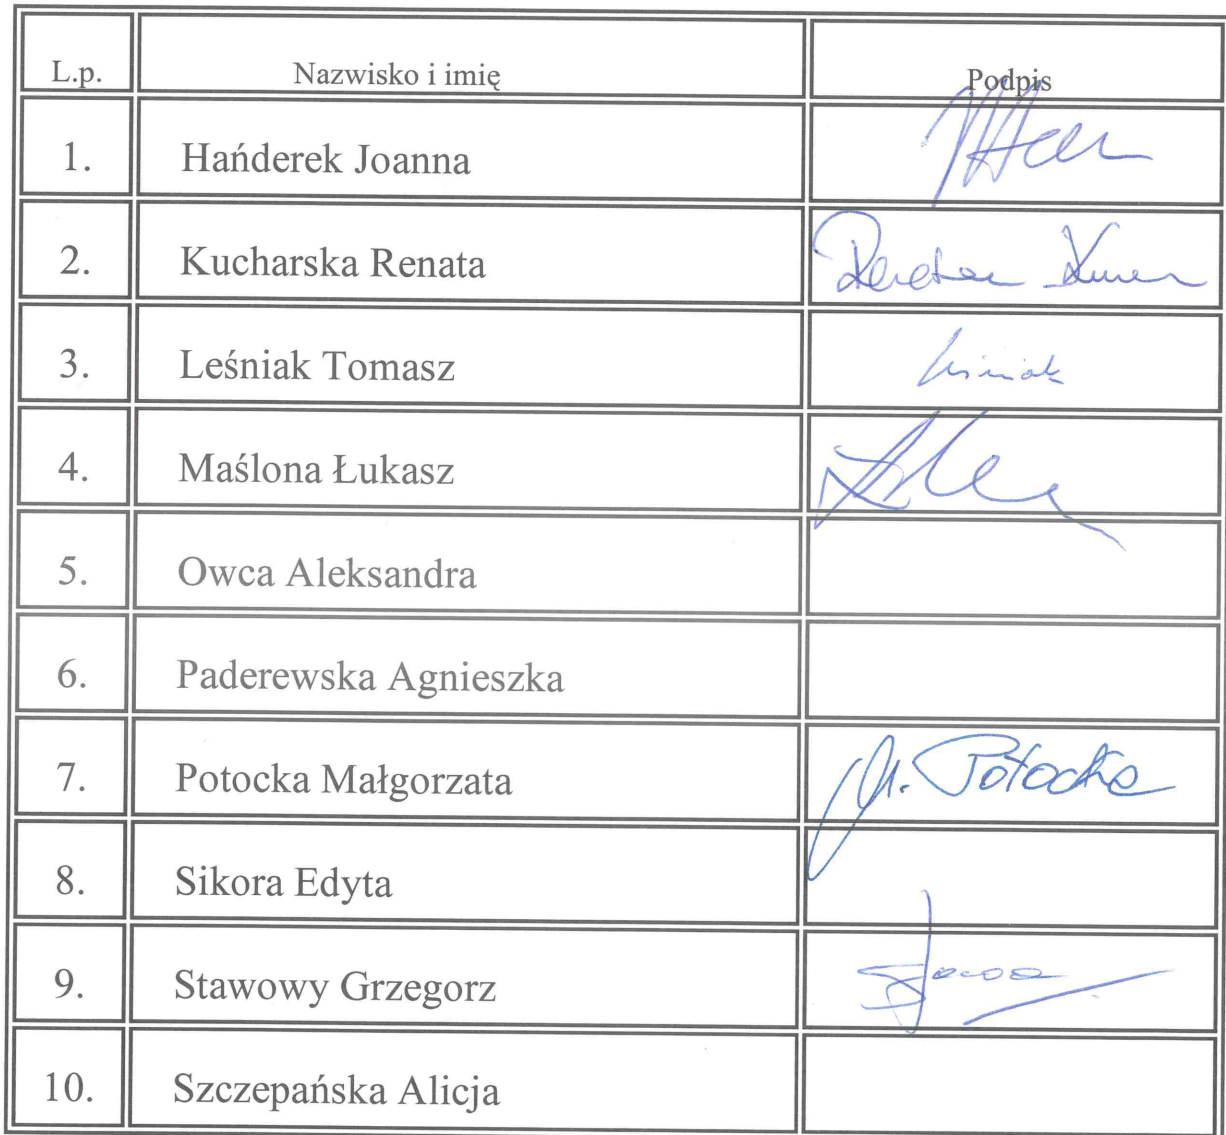 L.p. Nazwisko i imię Podpis
1. Hańderek Joanna
2. Kucharska Renata
3. Leśniak Tomasz
4. Maślona Łukasz
5. Owca Aleksandra
6. Paderewska Agnieszka
7. Potocka Małgorzata M. Potocka
8. Sikora Edyta
9. Stawowy Grzegorz
10. Szczepańska Alicja